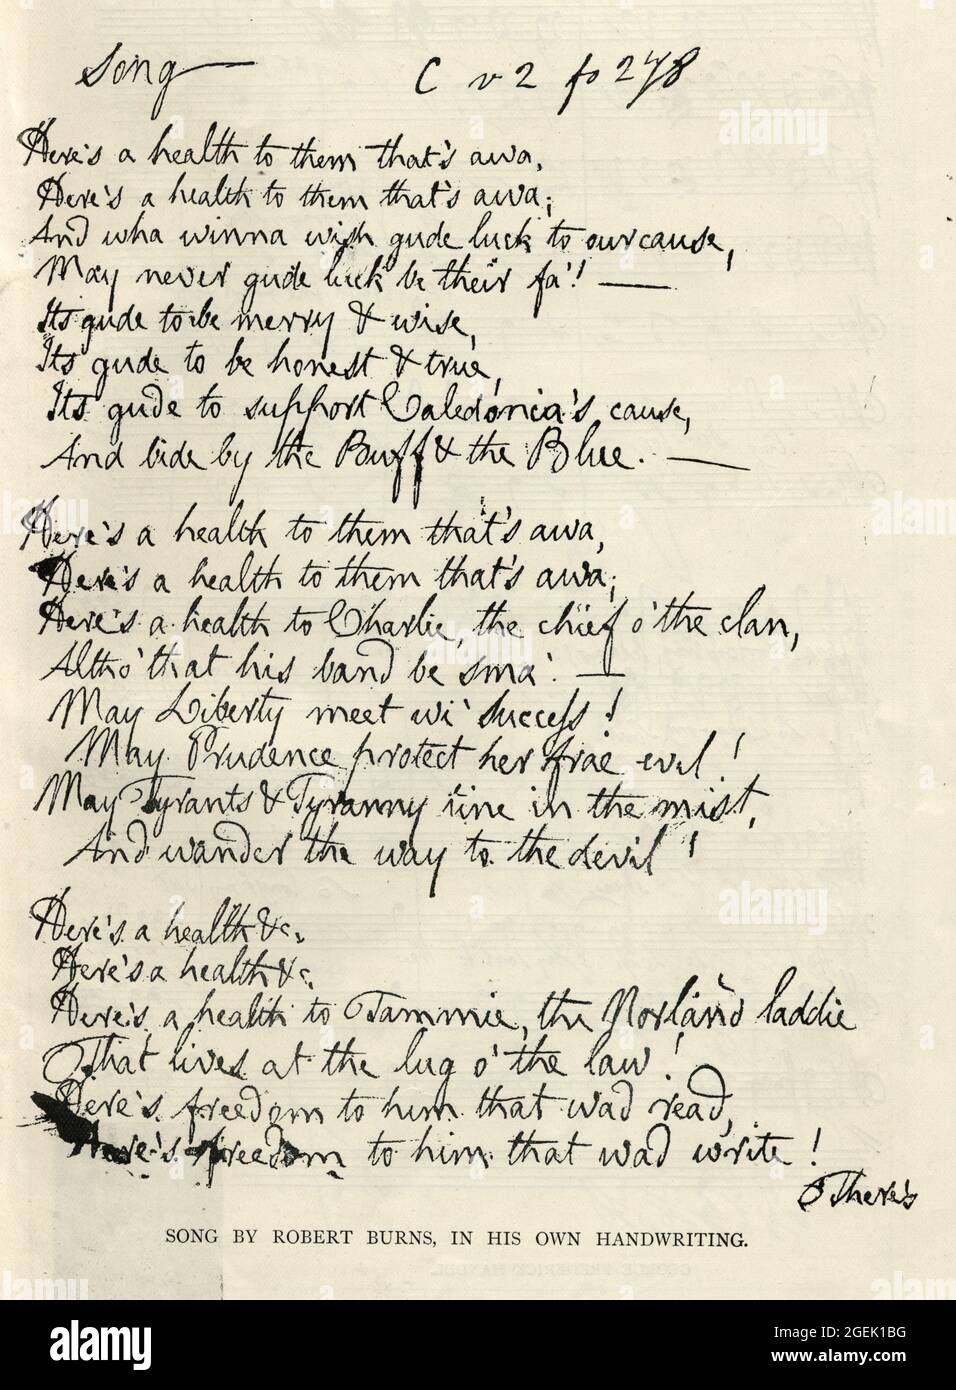 Song — C v 2 fo 278
Here's a health to them that's awa,
Here's a health to them that's awa;
And wha winna wish gude luck to our cause,
May never gude luck be their fa'! —
Its gude to be merry & wise,
Its gude to be honest & true,
Its gude to support Caledonia's cause,
And bide by the Buff & the Blue. —
Here's a health to them that's awa,
Here's a health to them that's awa;
Here's a health to Charlie, the chief o' the clan,
Altho' that his band be sma'. —
May Liberty meet wi' success!
May Prudence protect her frae evil!
May Tyrants & Tyranny tine in the mist,
And wander the way to the devil!
Here's a health &c.
Here's a health &c.
Here's a health to Tammie, the Norland laddie
That lives at the lug o' the law!
Here's freedom to him that wad read,
Here's freedom to him that wad write!
There's
SONG BY ROBERT BURNS, IN HIS OWN HANDWRITING.
GEORGE FREDERICK HANDEL.
alamy
alamy
alamy
alamy
alamy
alamy
Image ID: 2GEK1BG
www.alamy.com